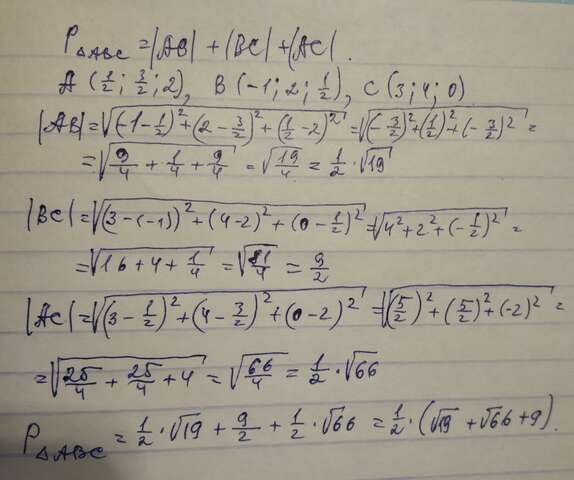 P△ABC = |AB| + |BC| + |AC|.
A (1/2; 3/2; 2), B (-1; 2; 1/2), C (3; 4; 0)
|AB| = √((-1-1/2)² + (2-3/2)² + (1/2-2)²) = √((-3/2)² + (1/2)² + (-3/2)²) =
= √(9/4 + 1/4 + 9/4) = √(19/4) = 1/2 · √19
|BC| = √((3-(-1))² + (4-2)² + (0-1/2)²) = √(4² + 2² + (-1/2)²) =
= √(16 + 4 + 1/4) = √(81/4) = 9/2
|AC| = √((3-1/2)² + (4-3/2)² + (0-2)²) = √((5/2)² + (5/2)² + (-2)²) =
= √(25/4 + 25/4 + 4) = √(66/4) = 1/2 · √66
P△ABC = 1/2 · √19 + 9/2 + 1/2 · √66 = 1/2 · (√19 + √66 + 9).